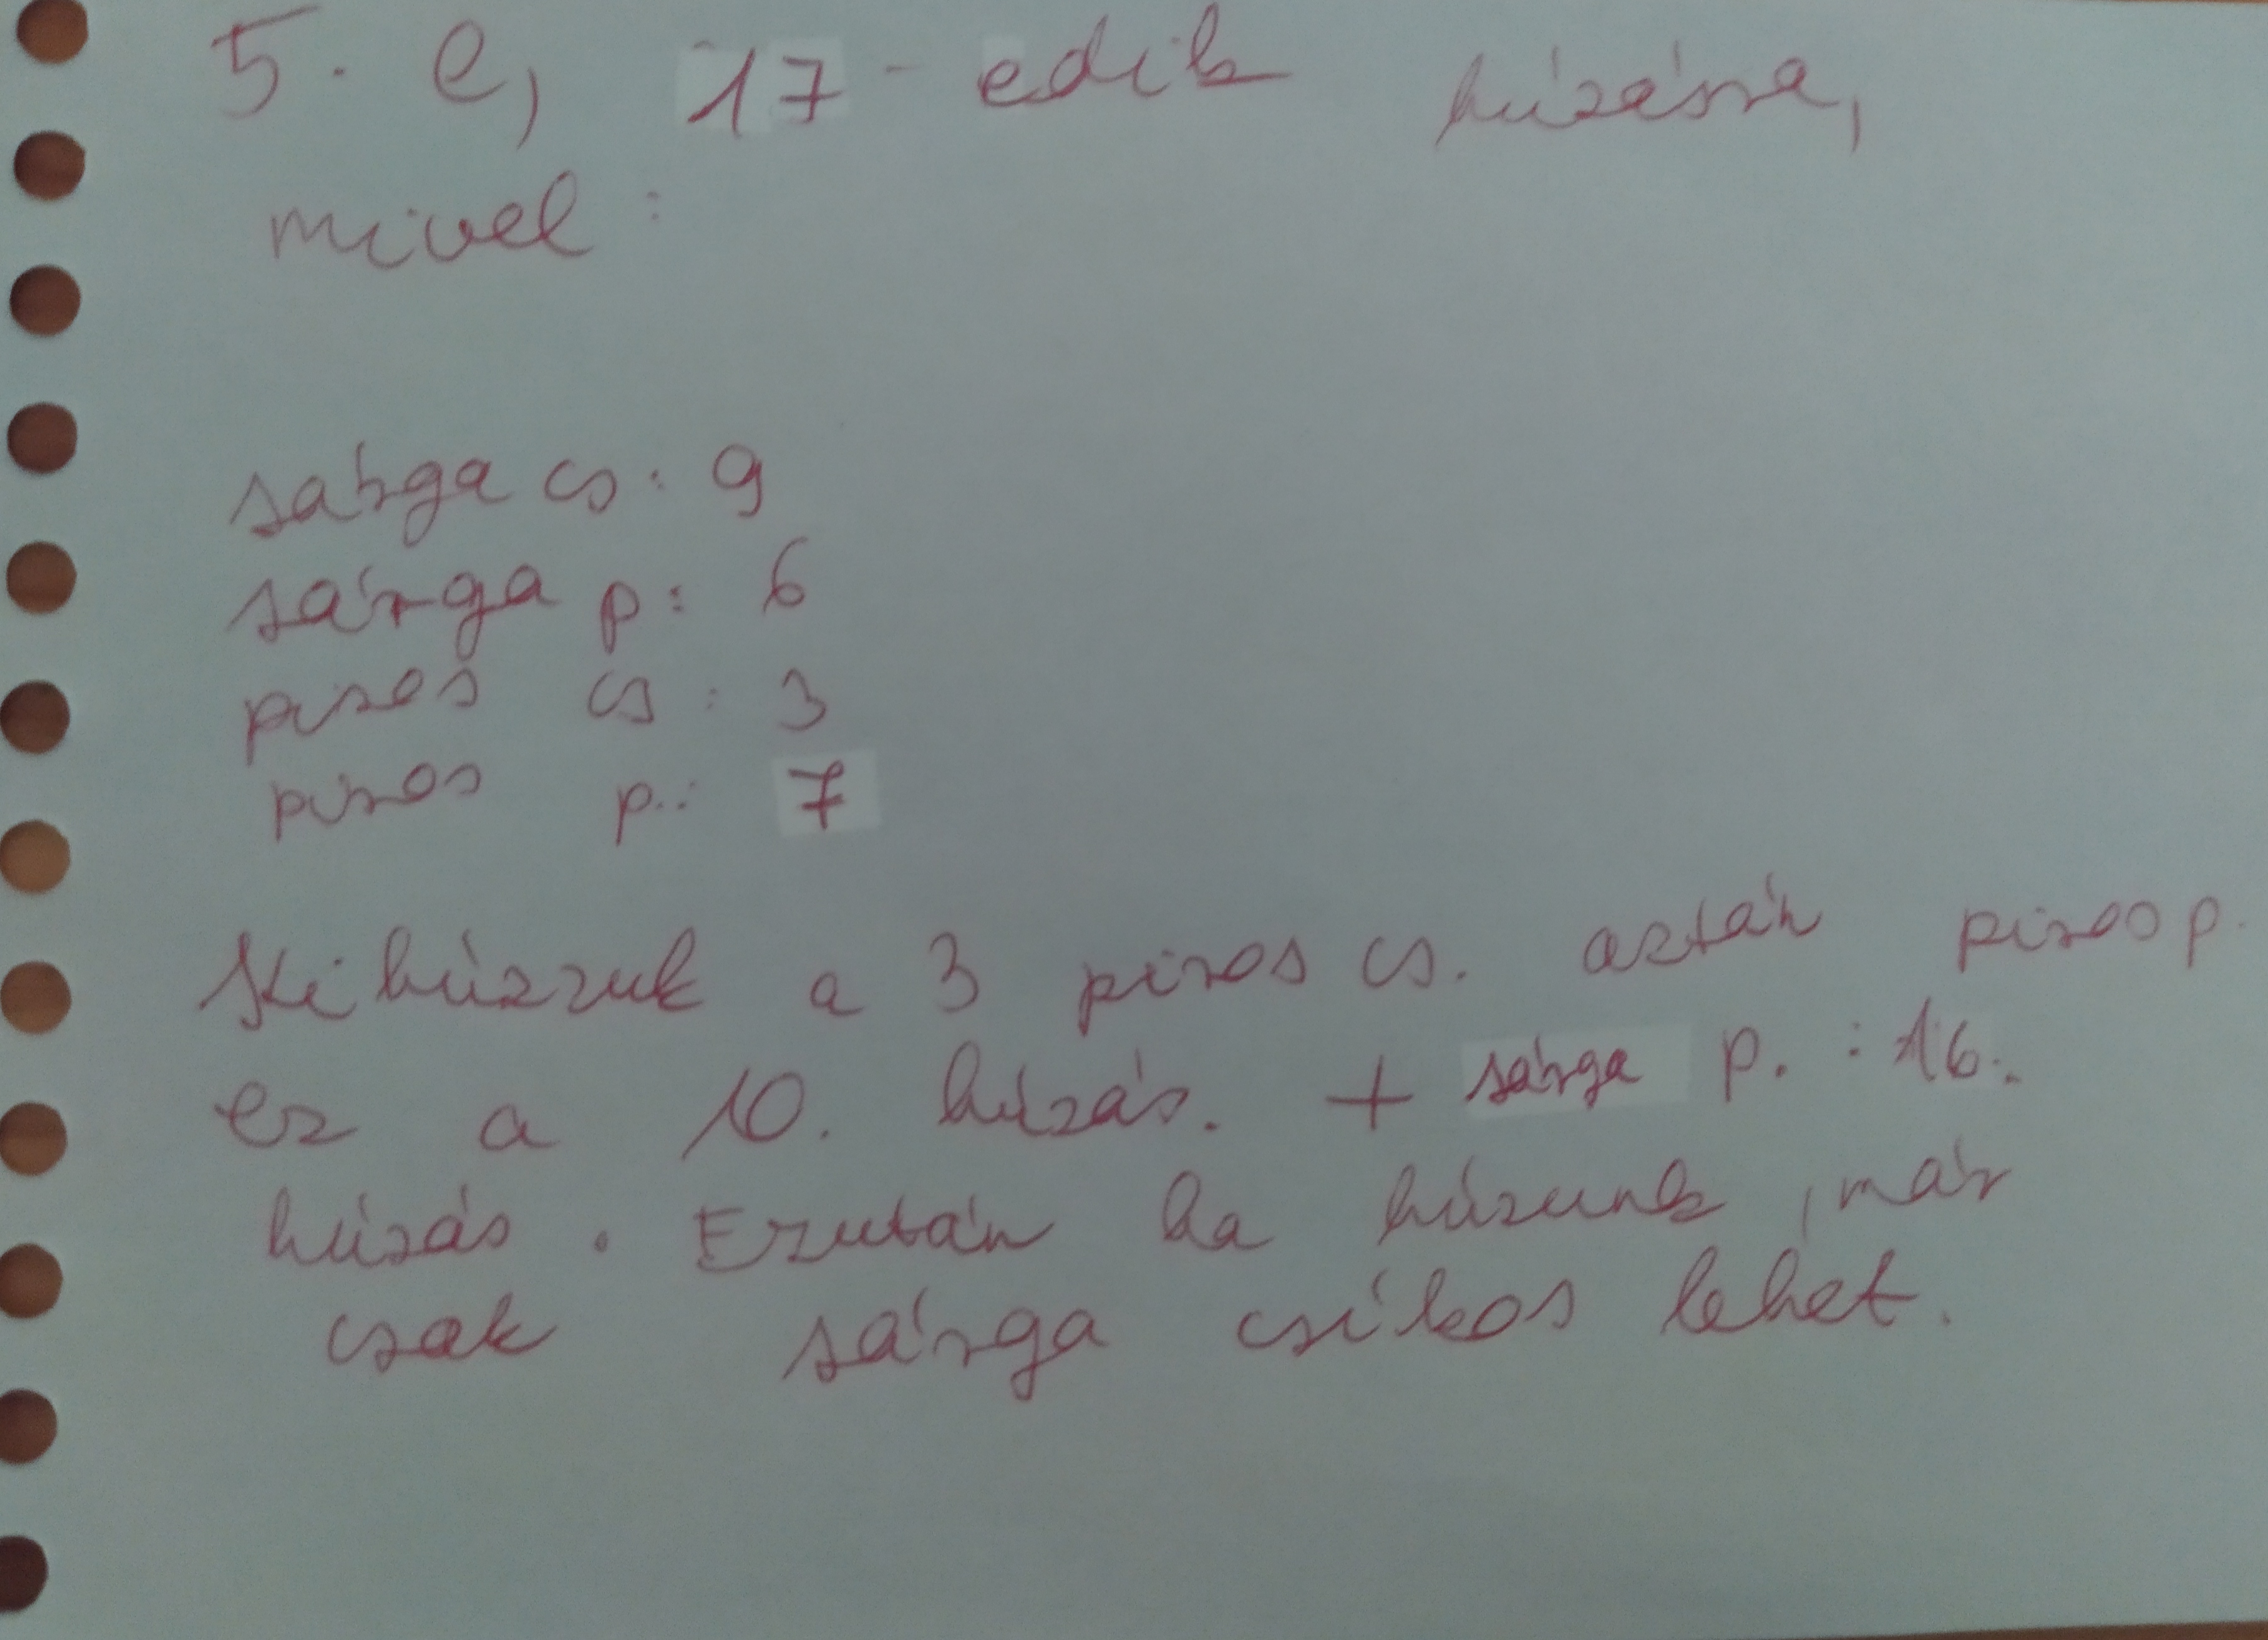 5. e, 17-edik húzásra,
mivel:
sárga cs: 9
sárga p: 6
piros cs: 3
piros p.: 7
Kihúzzuk a 3 piros cs. aztán piros p.
ez a 10. húzás. + sárga p. : 16.
húzás. Ezután ha húzunk, már
csak sárga csíkos lehet.